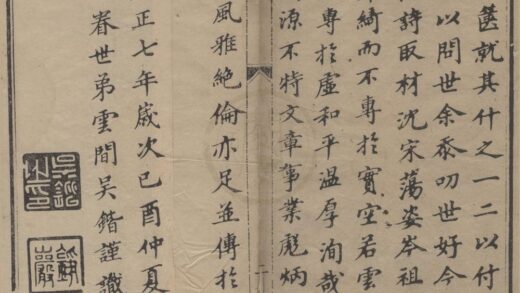 篋就其什之一二以付
以問世余忝叨世好今
詩取材沈宋蕩姿岑祖
綺而不專於實空若雲
專於虛和平温厚洵哉
源不特文章事業彪炳
風雅絶倫亦足並傳於
正七年歲次己酉仲夏
眷世弟雲間吳鍇謹識
二